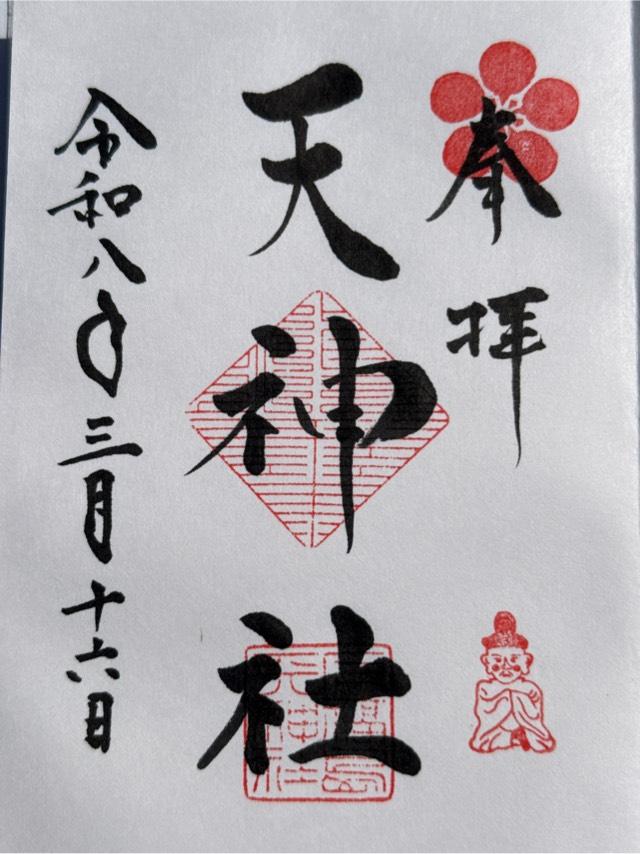 奉拝
天神社
令和八年三月十六日